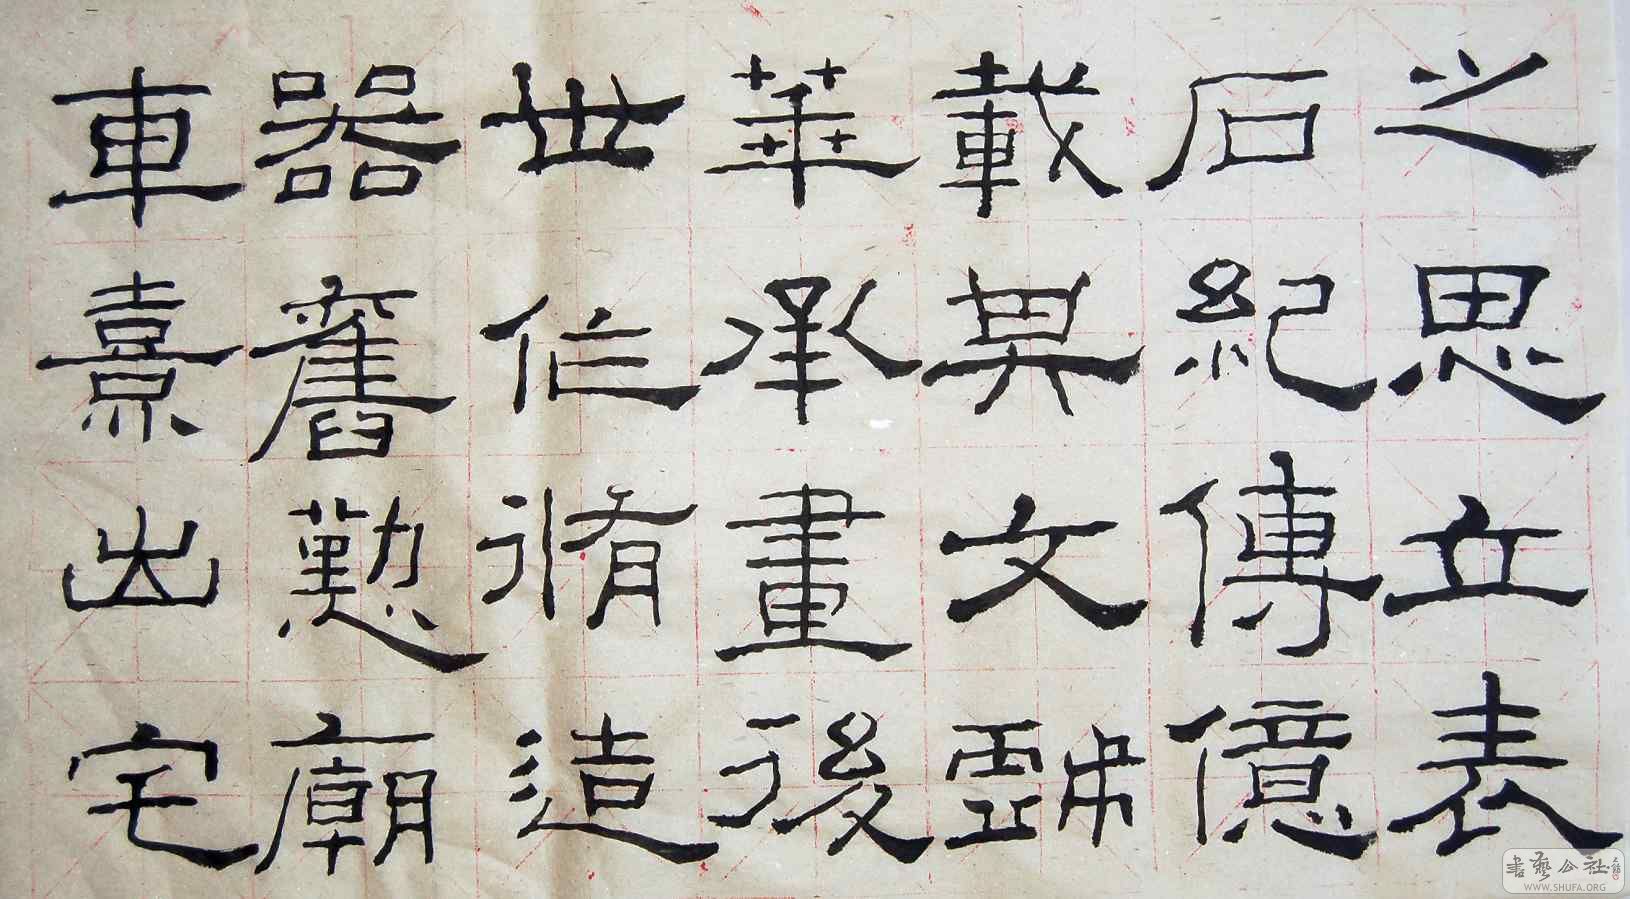 之思立表
石紀傳億
載其文
華承畫後
世作脩造
器舊懃廟
車熹出宅
書藝公社
WWW.SHUFA.ORG